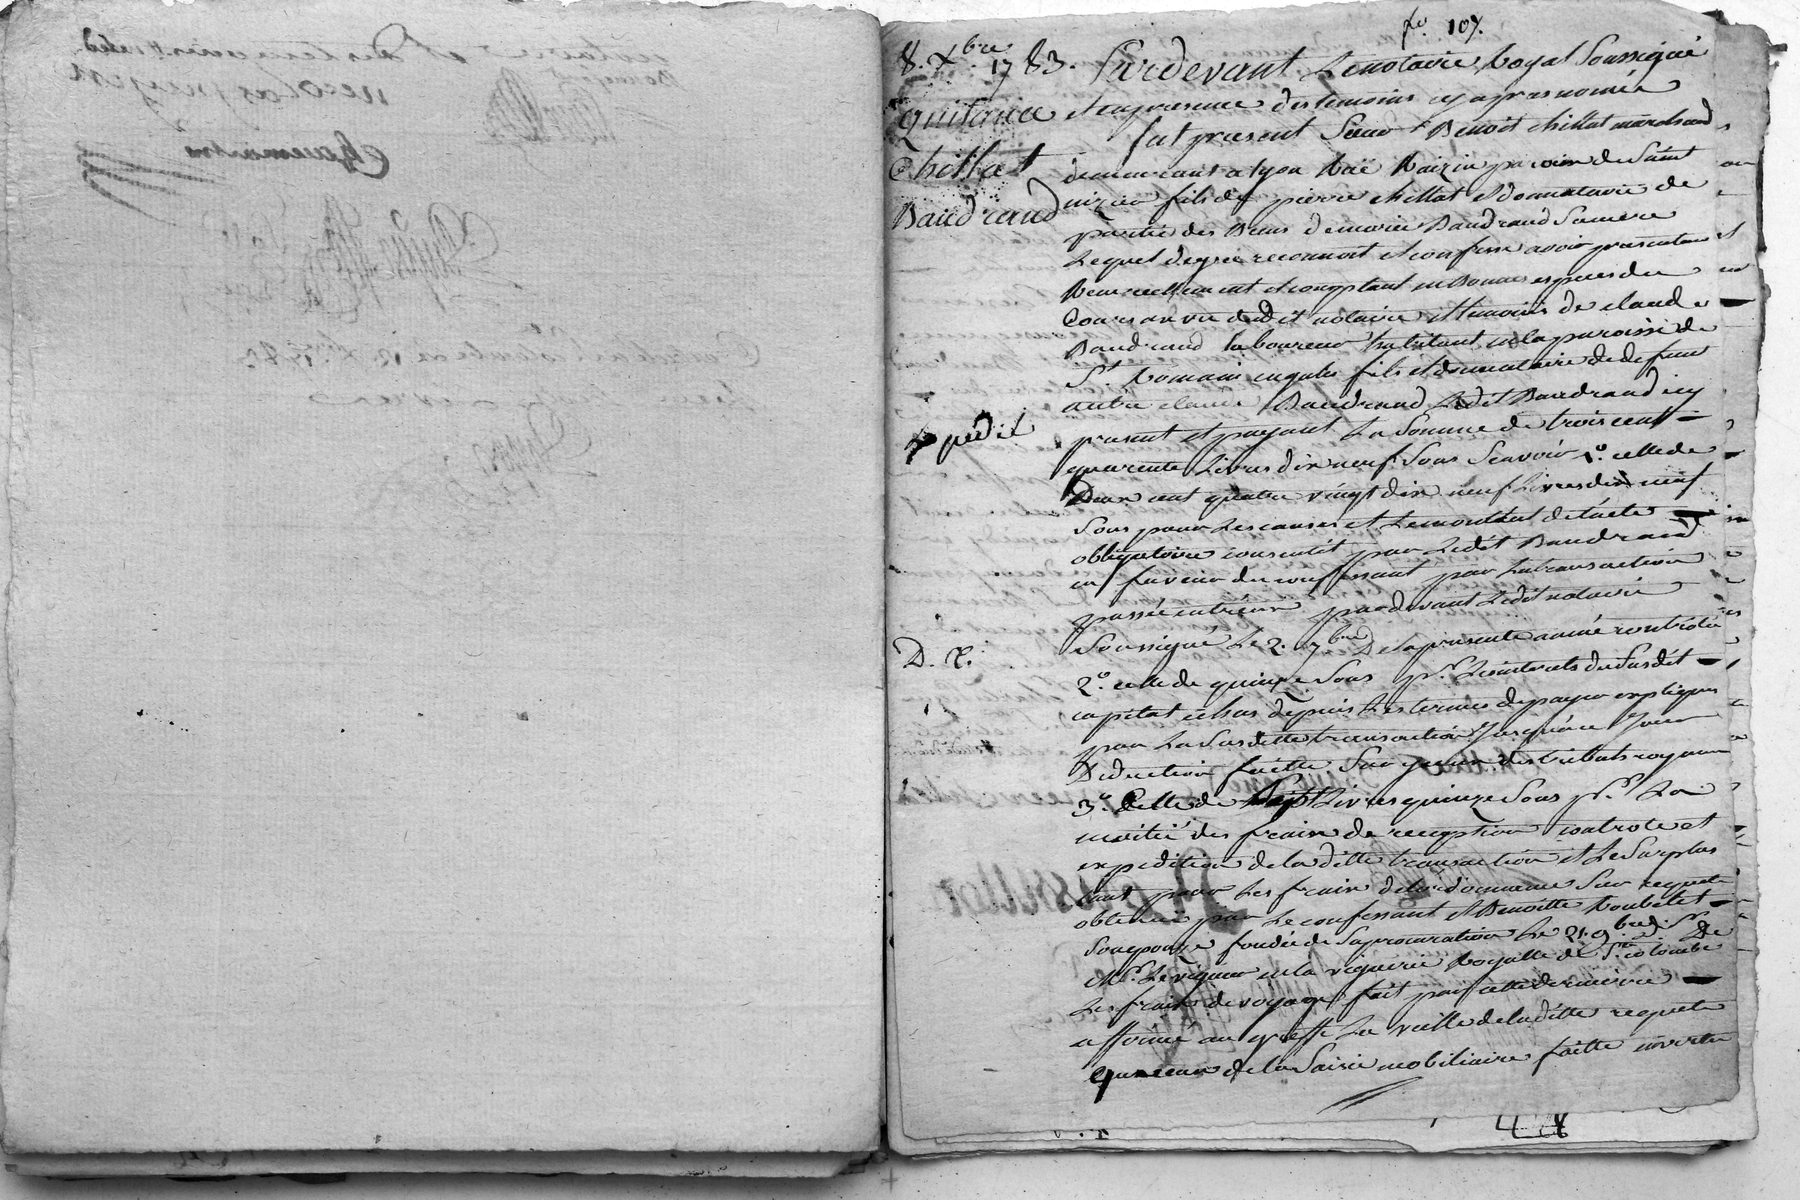 fo. 107.
8. Xbre 1783.
Quittance
Chillat
Baudrand
Expedié
D. R.
Pardevant Le notaire Royal Soussigné
et en presence des temoins cy apres només
fut present Sieur Benoit chillat marchand
demeurant a lyon Ruë Raizin paroisse de Saint
nizier fils de pierre chillat et donnataire de
partie des Biens de marie Baudrand Sa mere
Lequel de gré reconnoit et confesse avoir presentement
Reëllement et comptant en Bonnes especes du
Cours au vu dudit notaire et temoins de claude
Baudrand laboureur habitant en la paroisse de
St. Romain en galles fils et donnataire de defunt
autre claude Baudrand Ledit Baudrand icy
present et payant La Somme de trois cent
quarente Livres dix neuf Sous Scavoir 1o. celle de
Deux cent quatre vingt dix neuf Livres dix neuf
Sous pour Les causes et Le montant de l'acte
obligatoire consentit par Ledit Baudrand
en faveur du confessant par La transaction
passée entr'eux pardevant Ledit notaire
Soussigné Le 2. 7bre De la presente année controlé
2o. celle de quinze Sous pr. Les interets du Susdit
capital echus depuis Les termes de payer expliqués
par La Susditte transaction Jusqu'à ce Jour
Deduction faitte Sur yceux des tributs royaux
3o. Celle de Sept Livres quinze Sous pr. La
moitié des fraix de reception controle et
expedition de la ditte transaction et Le Surplus
tant pour Les fraix de l'ordonnance Sur requete
obtenuë par Le confessant et Benoitte Roubelet
Son epouse fondée de Sa procuration Le 21. 9bre dr. De
Mr. Le viguier en la viguerie Royalle de Ste. colombe
Les fraix de voyage fait par cette derniere
affirmé au greffe La veille de la ditte requete
que ceux de la Saisie mobiliaire faitte en vertu